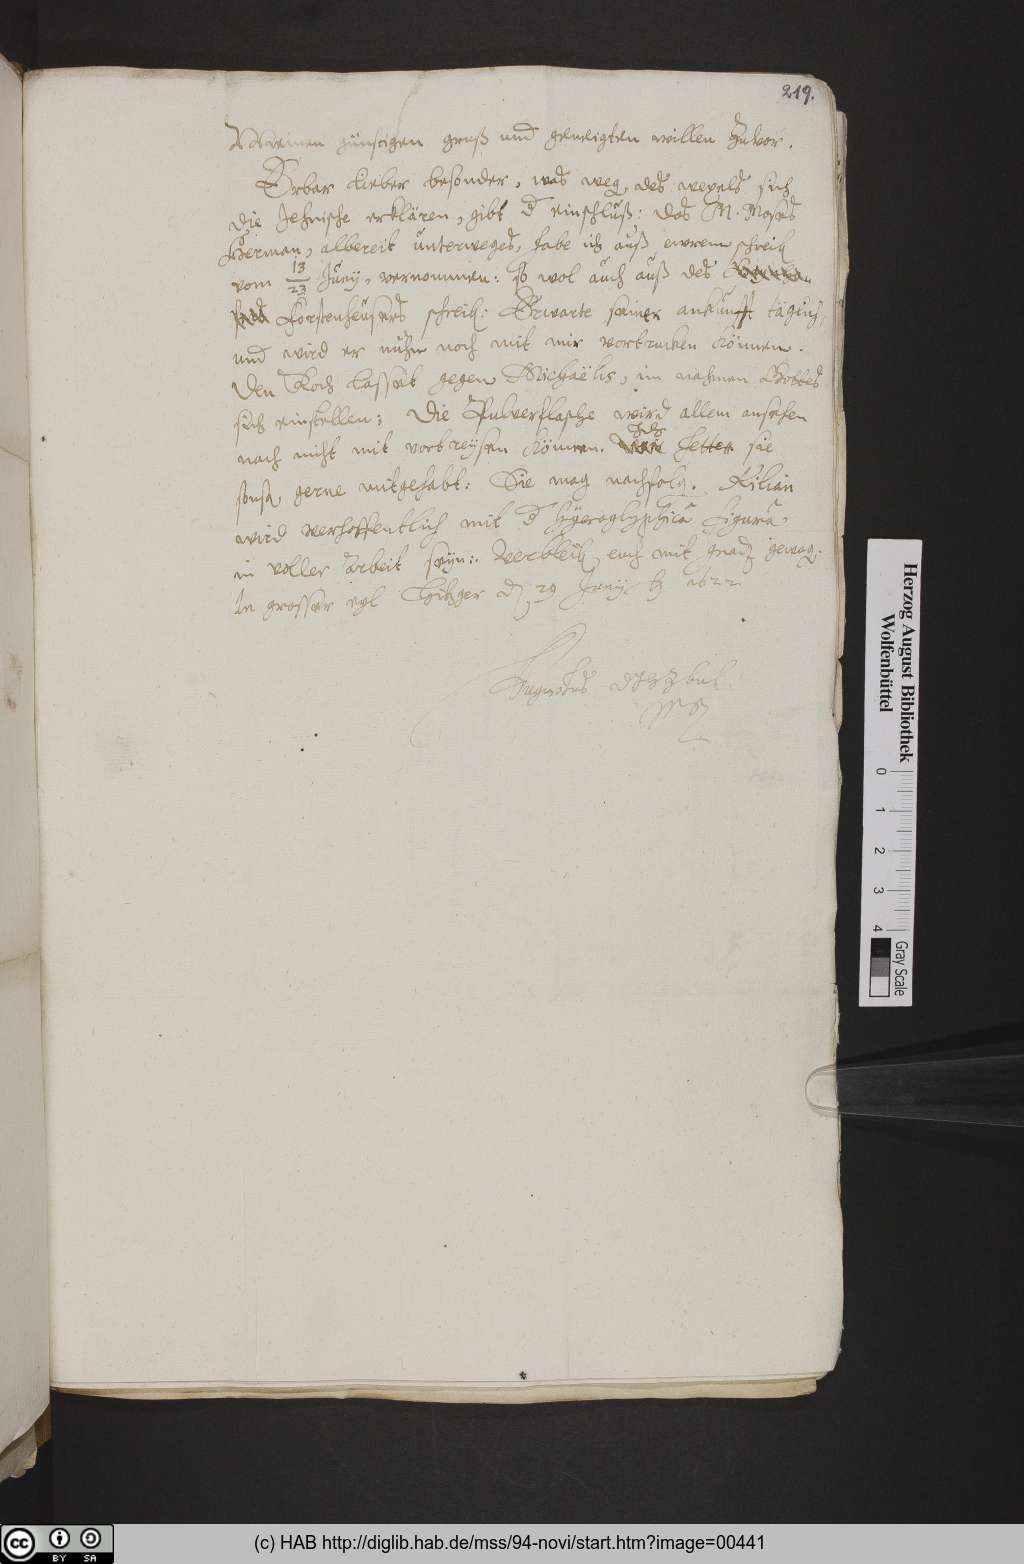 219.
Meinen günstigen gruß und geneigten willen zuvor.
Erbar lieber besonder, was weg. des wexels sich
die Jehnische erklären, gibt d einschluß: das M. Moses
Herman, albereit unterweges, habe ich auß ewrem schreib.
vom 13/23 Junij, vernommen: so wol auch auß des
Forstenheusers schreib: Erwarte seiner ankunfft täglich,
und wird er nuhn noch mit mir vortrucken können.
Den Koch lasset gegen Michaëlis, im nahmen Gottes
sich einstellen: Die Pulverflasche wird allem ansehen
nach nicht mit vortreysen können. Ich hette sie
sonst gerne mitgehabt: Sie mag nachfolg. Kilian
wird verhoffentlich mit d hyeroglyphica figura
in voller arbeit seyn: Verbleib euch mit gnad gewog.
In grosser eyl Hitzger d 29 Junij 1622
Augustus
Herzog August Bibliothek
Wolfenbüttel
0 1 2 3 4
Gray Scale
(c) HAB http://diglib.hab.de/mss/94-novi/start.htm?image=00441
cc BY SA